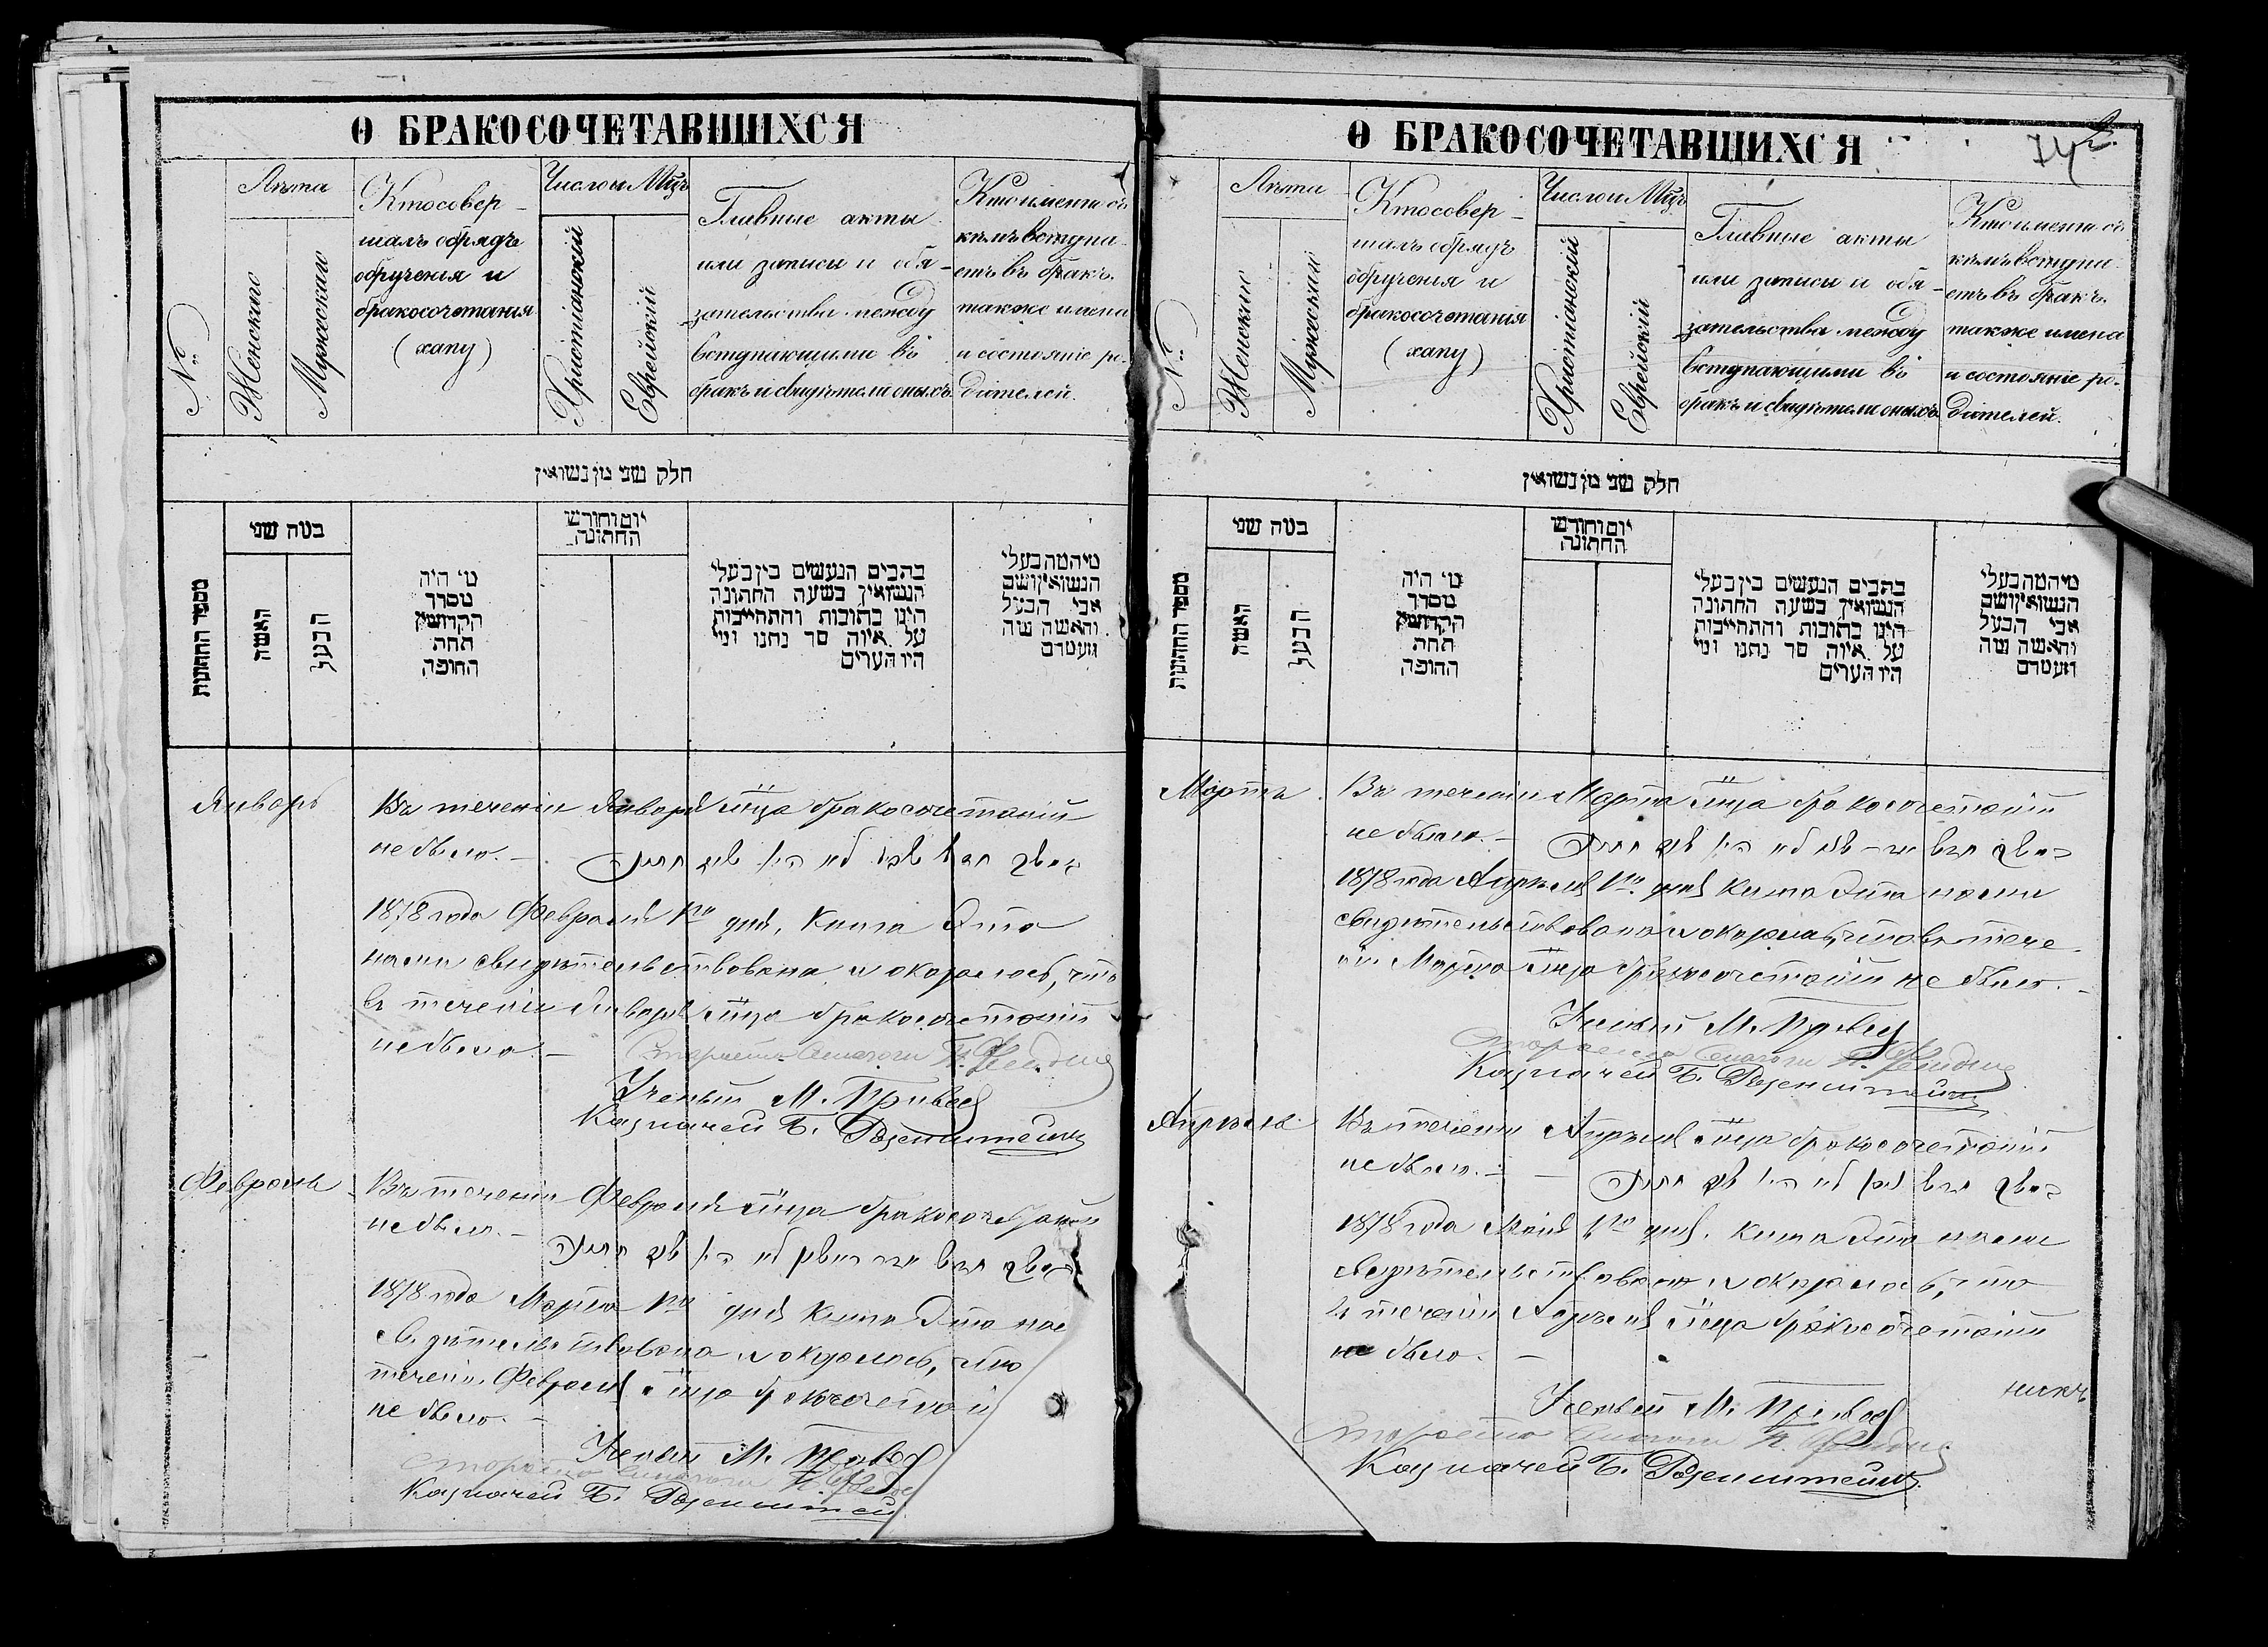 О БРАКОСОЧЕТАВШИХСЯ
№
Лѣта
Женскаго
Мужескаго
Кто совер-
шалъ обрядъ
обрученія и
бракосочетанія
(хупу)
Число и Мѣцъ
Христіанскій
Еврейскій
Главные акты
или записи и обя-
зательства между
вступающими въ
бракъ и свидѣтели оныхъ
Кто именно съ
кѣмъ вступа-
етъ въ бракъ.
также имена
и состояніе ро-
дителей.
חלק שני מן נשואין
מספר החתונות
במה שני
האשה
הבעל
מי היה
מסדר
הקדושין
תחת
החופה
יום וחודש
החתונה
כתבים הנעשים בין בעלי
הנשואין בשעה החתונה
היינו כתובות והתחייבות
על איזה סך נתנו ומי
היו הערים
מי המה בעלי
הנשואין ושם
אבי הבעל
והאשה מה
מעמדם
Январь
Въ теченіи Января мѣца бракосочетаній
не было. —
1878 года Февраля 1го дня, книга эта
нами свидѣтельствована и оказалось, что
въ теченіи Января мѣца бракосочетаній
не было. —
Староста синагоги
Ученый М. Привес
Казначей Б. Розенштейнъ
Февраль
Въ теченіи Февраля мѣца бракосочетаній
не было. —
1878 года Марта 1го дня книга эта на
свидѣтельствована и оказалось, что
теченіи Февраля мѣца бракосочетаній
не было. —
Ученый М. Привес
Староста синагоги
Казначей Б. Розенштей
О БРАКОСОЧЕТАВШИХСЯ
74
2.
№
Лѣта
Женскаго
Мужескаго
Кто совер-
шалъ обрядъ
обрученія и
бракосочетанія
(хупу)
Число и Мѣцъ
Христіанскій
Еврейскій
Главные акты
или записи и обя-
зательства между
вступающими въ
бракъ и свидѣтели оныхъ
Кто именно съ
кѣмъ вступа-
етъ въ бракъ.
также имена
и состояніе ро-
дителей.
חלק שני מן נשואין
מספר החתונות
במה שני
האשה
הבעל
מי היה
מסדר
הקדושין
תחת
החופה
יום וחודש
החתונה
כתבים הנעשים בין בעלי
הנשואין בשעה החתונה
היינו כתובות והתחייבות
על איזה סך נתנו ומי
היו הערים
מי המה בעלי
הנשואין ושם
אבי הבעל
והאשה מה
מעמדם
Мартъ
Въ теченіи Марта мѣца бракосочетаній
не было. —
1878 года Апрѣля 1го дня книга эта нами
свидѣтельствована и оказалось, что въ тече-
ніи Марта мѣца бракосочетаній не было. —
Ученый М. Привес
Староста синагоги
Казначей Б. Розенштейнъ
Апрѣль
Въ теченіи Апрѣля мѣца бракосочетаній
не было. —
1878 года Мая 1го дня. книга эта нами
свидѣтельствована и оказалось, что
въ теченіи Апрѣля мѣца бракосочетаній
не было. —
Ученый М. Привес
Староста синагоги
Казначей Б. Розенштейнъ